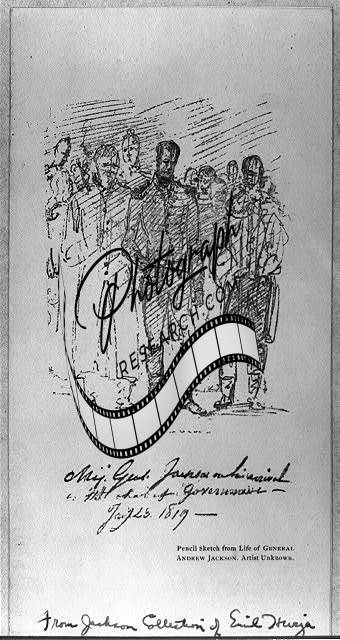 Photograph
RESEARCH.COM
Maj. Genl. Jackson on his arrival
Governour
Jany 23. 1819 —
Pencil Sketch from Life of GENERAL
ANDREW JACKSON. Artist Unknown.
From Jackson Collection of Emil Hurja